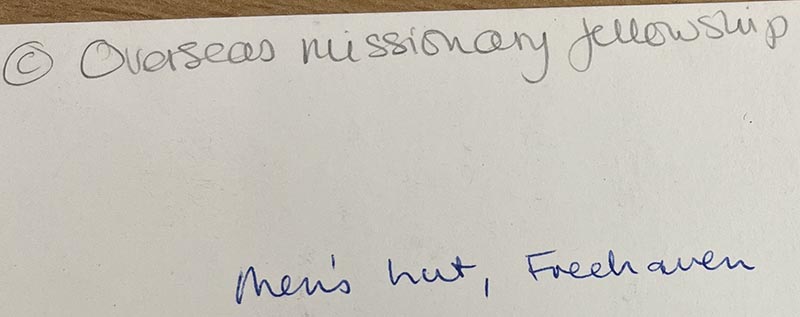 © Overseas missionary fellowship
Men's hut, Freehaven